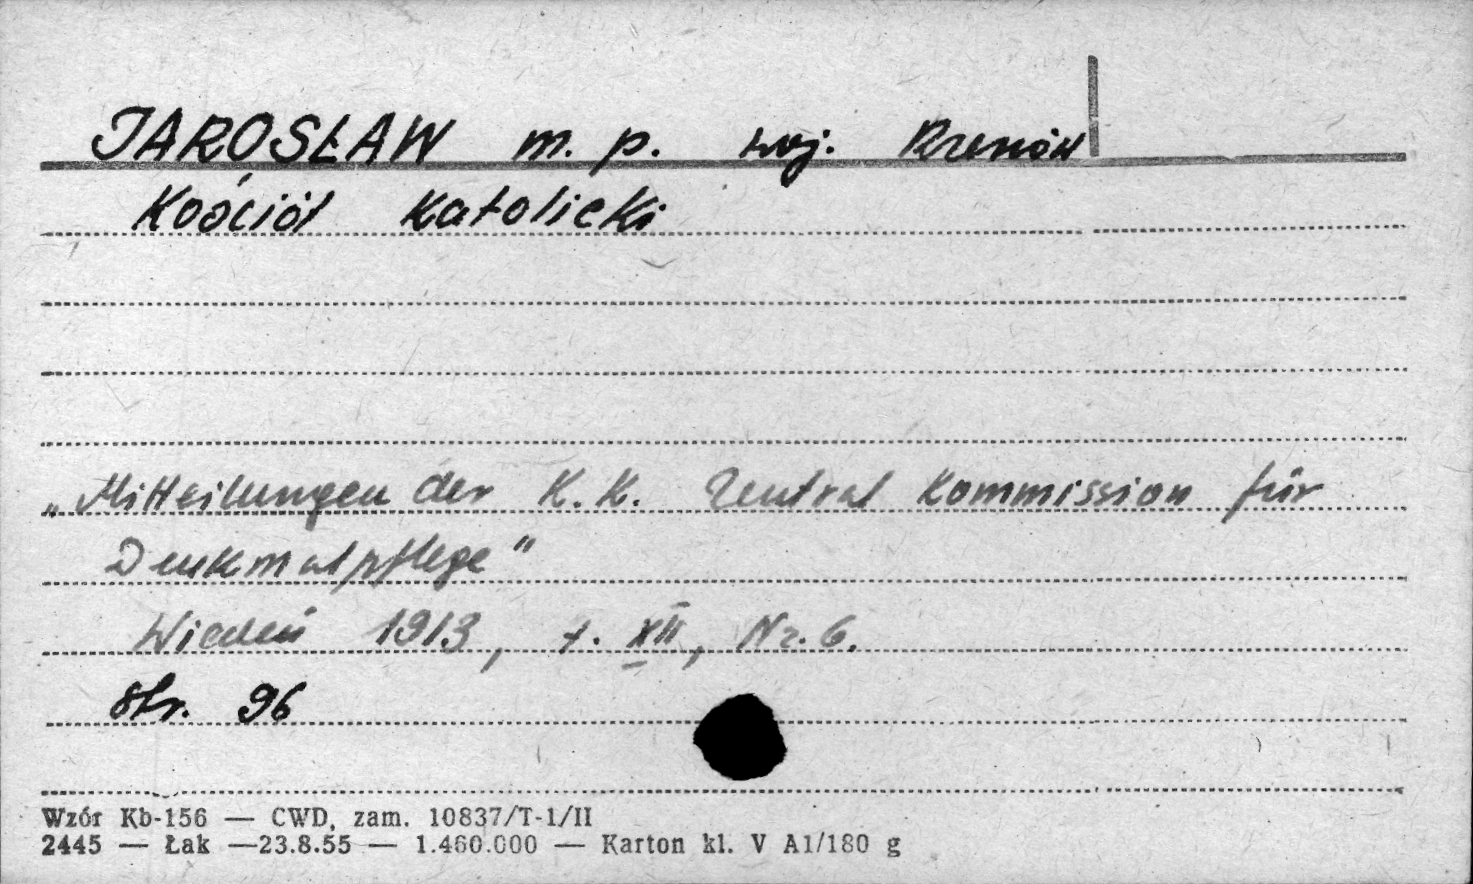 JAROSŁAW m. p. woj. Rzeszów
Kościół Katolicki
„Mitteilungen der K.K. Zentral Kommission für
Denkmalpflege"
Wiedeń 1913, t. XII, Nr. 6.
str. 96
Wzór Kb-156 — CWD, zam. 10837/T-1/II
2445 — Łak —23.8.55 — 1.460.000 — Karton kl. V A1/180 g